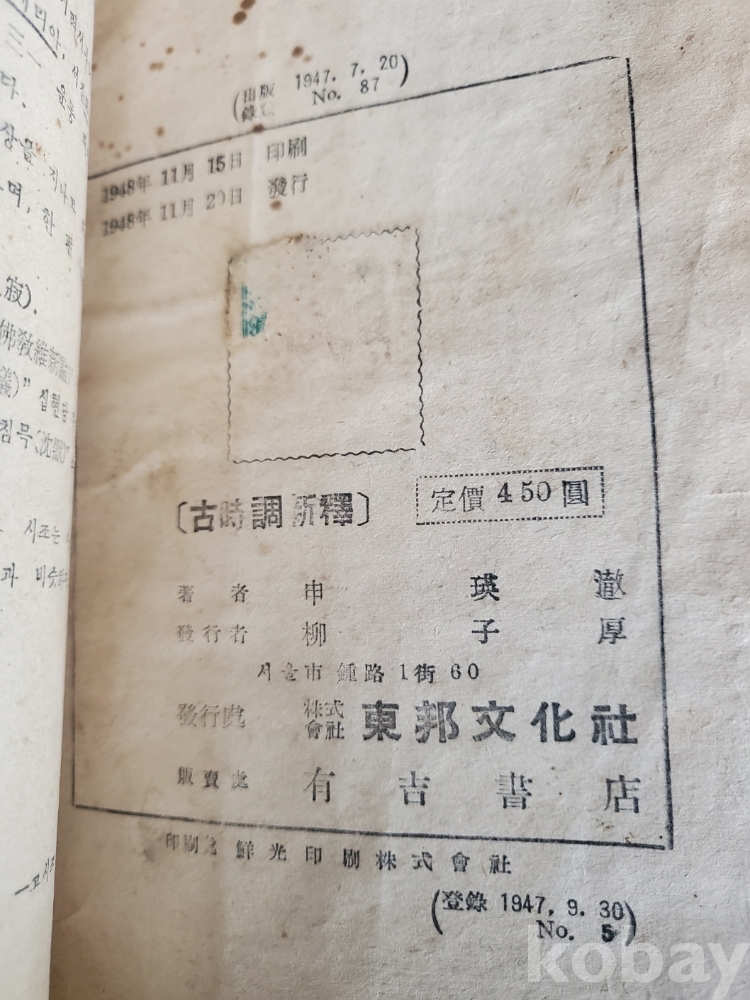 (出版 1947. 7. 20)
No. 87
1948年 11月 15日 印刷
1948年 11月 20日 發行
〔古時調新釋〕
定價 450圓
著者 申瑛澈
發行者 柳子厚
서울市 鍾路 1街 60
發行處 株式會社 東邦文化社
販賣處 有吉書店
印刷 鮮光印刷株式會社
(登錄 1947. 9. 30)
No. 5
다.
상을 지나고
며, 한
寂).
佛敎維新論
침묵(沈默)
시조는
과 비슷
kobay